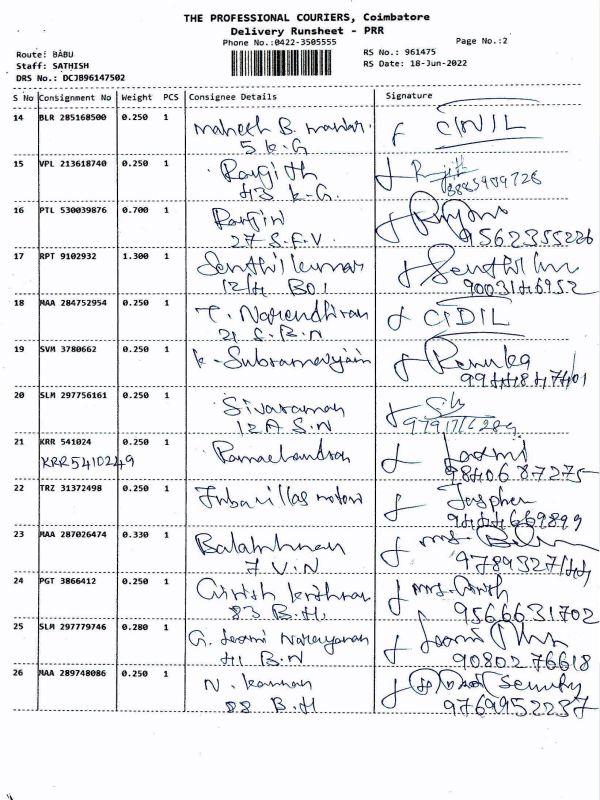 THE PROFESSIONAL COURIERS, Coimbatore
Delivery Runsheet - PRR
Phone No.:0422-3505555
Page No.:2
Route: BABU
RS No.: 961475
Staff: SATHISH
RS Date: 18-Jun-2022
DRS No.: DCJB96147502
S No Consignment No Weight PCS Consignee Details Signature
14 BLR 285168500 0.250 1 Mahesh B.
5 K.G
15 VPL 213618740 0.250 1 Ranjith
43 K.G.
16 PTL 530039876 0.700 1
27 S.F.V. 9562355226
17 RPT 9102932 1.300 1 Senthil kumar
12/4 B01 9003146952
18 MAA 284752954 0.250 1 T. Narendhiran
21 S.B.N
19 SVM 3780662 0.250 1 K. Renuka
20 SLM 297756161 0.250 1 Sivaraman
12A S.N
21 KRR 541024 0.250 1 Ramachandran Laxmi
KRR5410249 9840687275
22 TRZ 31372498 0.250 1 motors
9444669899
23 MAA 287026474 0.330 1
7 V.N
24 PGT 3866412 0.250 1 Girish Mrs.
83 B.H 9566631702
25 SLM 297779746 0.280 1 G. Laxmi Narayanan Laxmi
41 B.N 9080276618
26 MAA 289748086 0.250 1 N. Kannan Security
88 B.H 9769952237